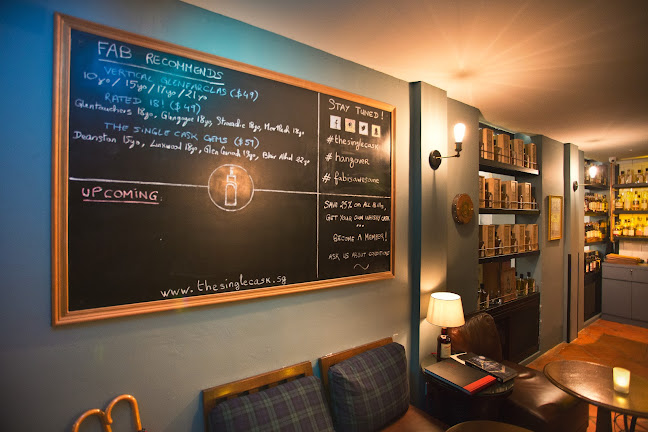 FAB RECOMMENDS
VERTICAL GLENFARCLAS ($49)
10yo / 15yo / 17yo / 21yo
RATED 18! ($49)
18yo, 18yo, 18yo, 18yo
THE SINGLE CASK GEMS ($57)
Deanston 15yo, Linkwood 18yo, Glen 17yo, Blair Athol 22yo
UPCOMING
www.thesinglecask.sg
STAY TUNED!
#thesinglecask
#hangover
#fabisawesome
SAVE 25% ON ALL Bottly,
GET YOUR OWN WHISKY CASK
...
BECOME A MEMBER!
ASK US ABOUT CONDITIONS